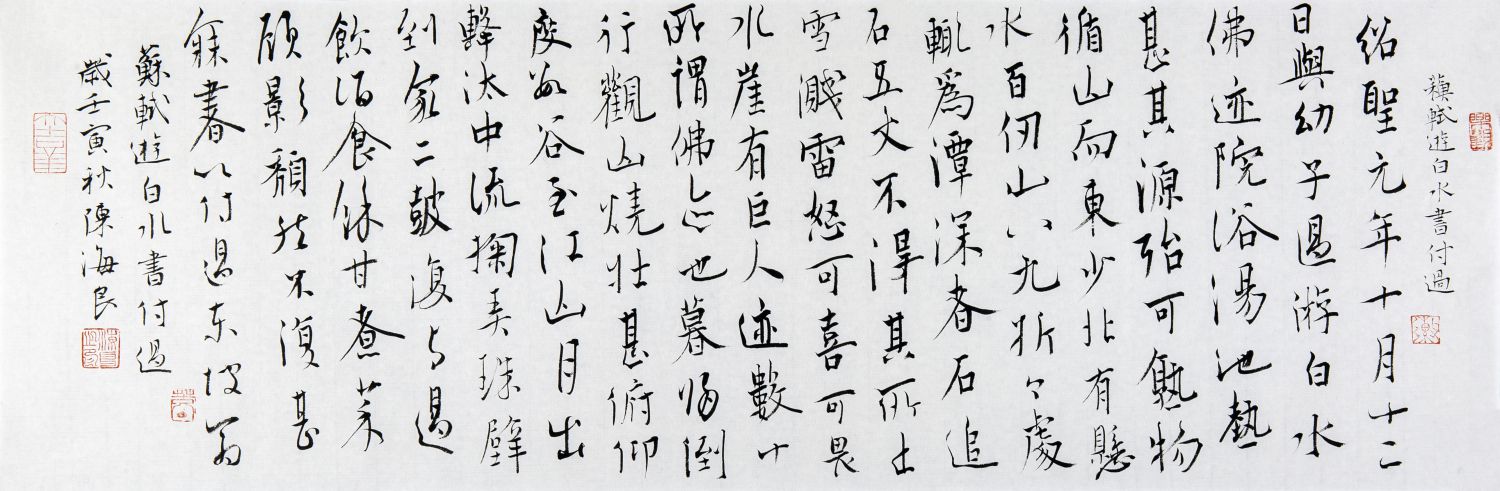 蘇軾遊白水書付過
紹聖元年十月十二
日與幼子過游白水
佛迹院浴湯池熱
甚其源殆可熟物
循山而東少北有懸
水百仞山八九折々處
輒爲潭深者石追
石五丈不得其所止
雪濺雷怒可喜可畏
水崖有巨人迹數十
所謂佛迹也暮歸倒
行觀山燒壯甚俯仰
度數谷至江山月出
擊汰中流掬弄珠璧
到家二鼓復與過
飲酒食餘甘煮菜
顧影頹然不復甚
寐書以付過東坡翁
蘇軾遊白水書付過
歲壬寅秋陳海良